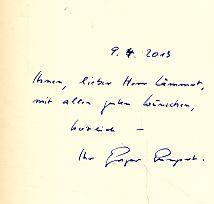 9. 4. 2013
Ihnen, lieber Herr Lämmert,
mit allen guten Wünschen,
herzlich –
Ihr